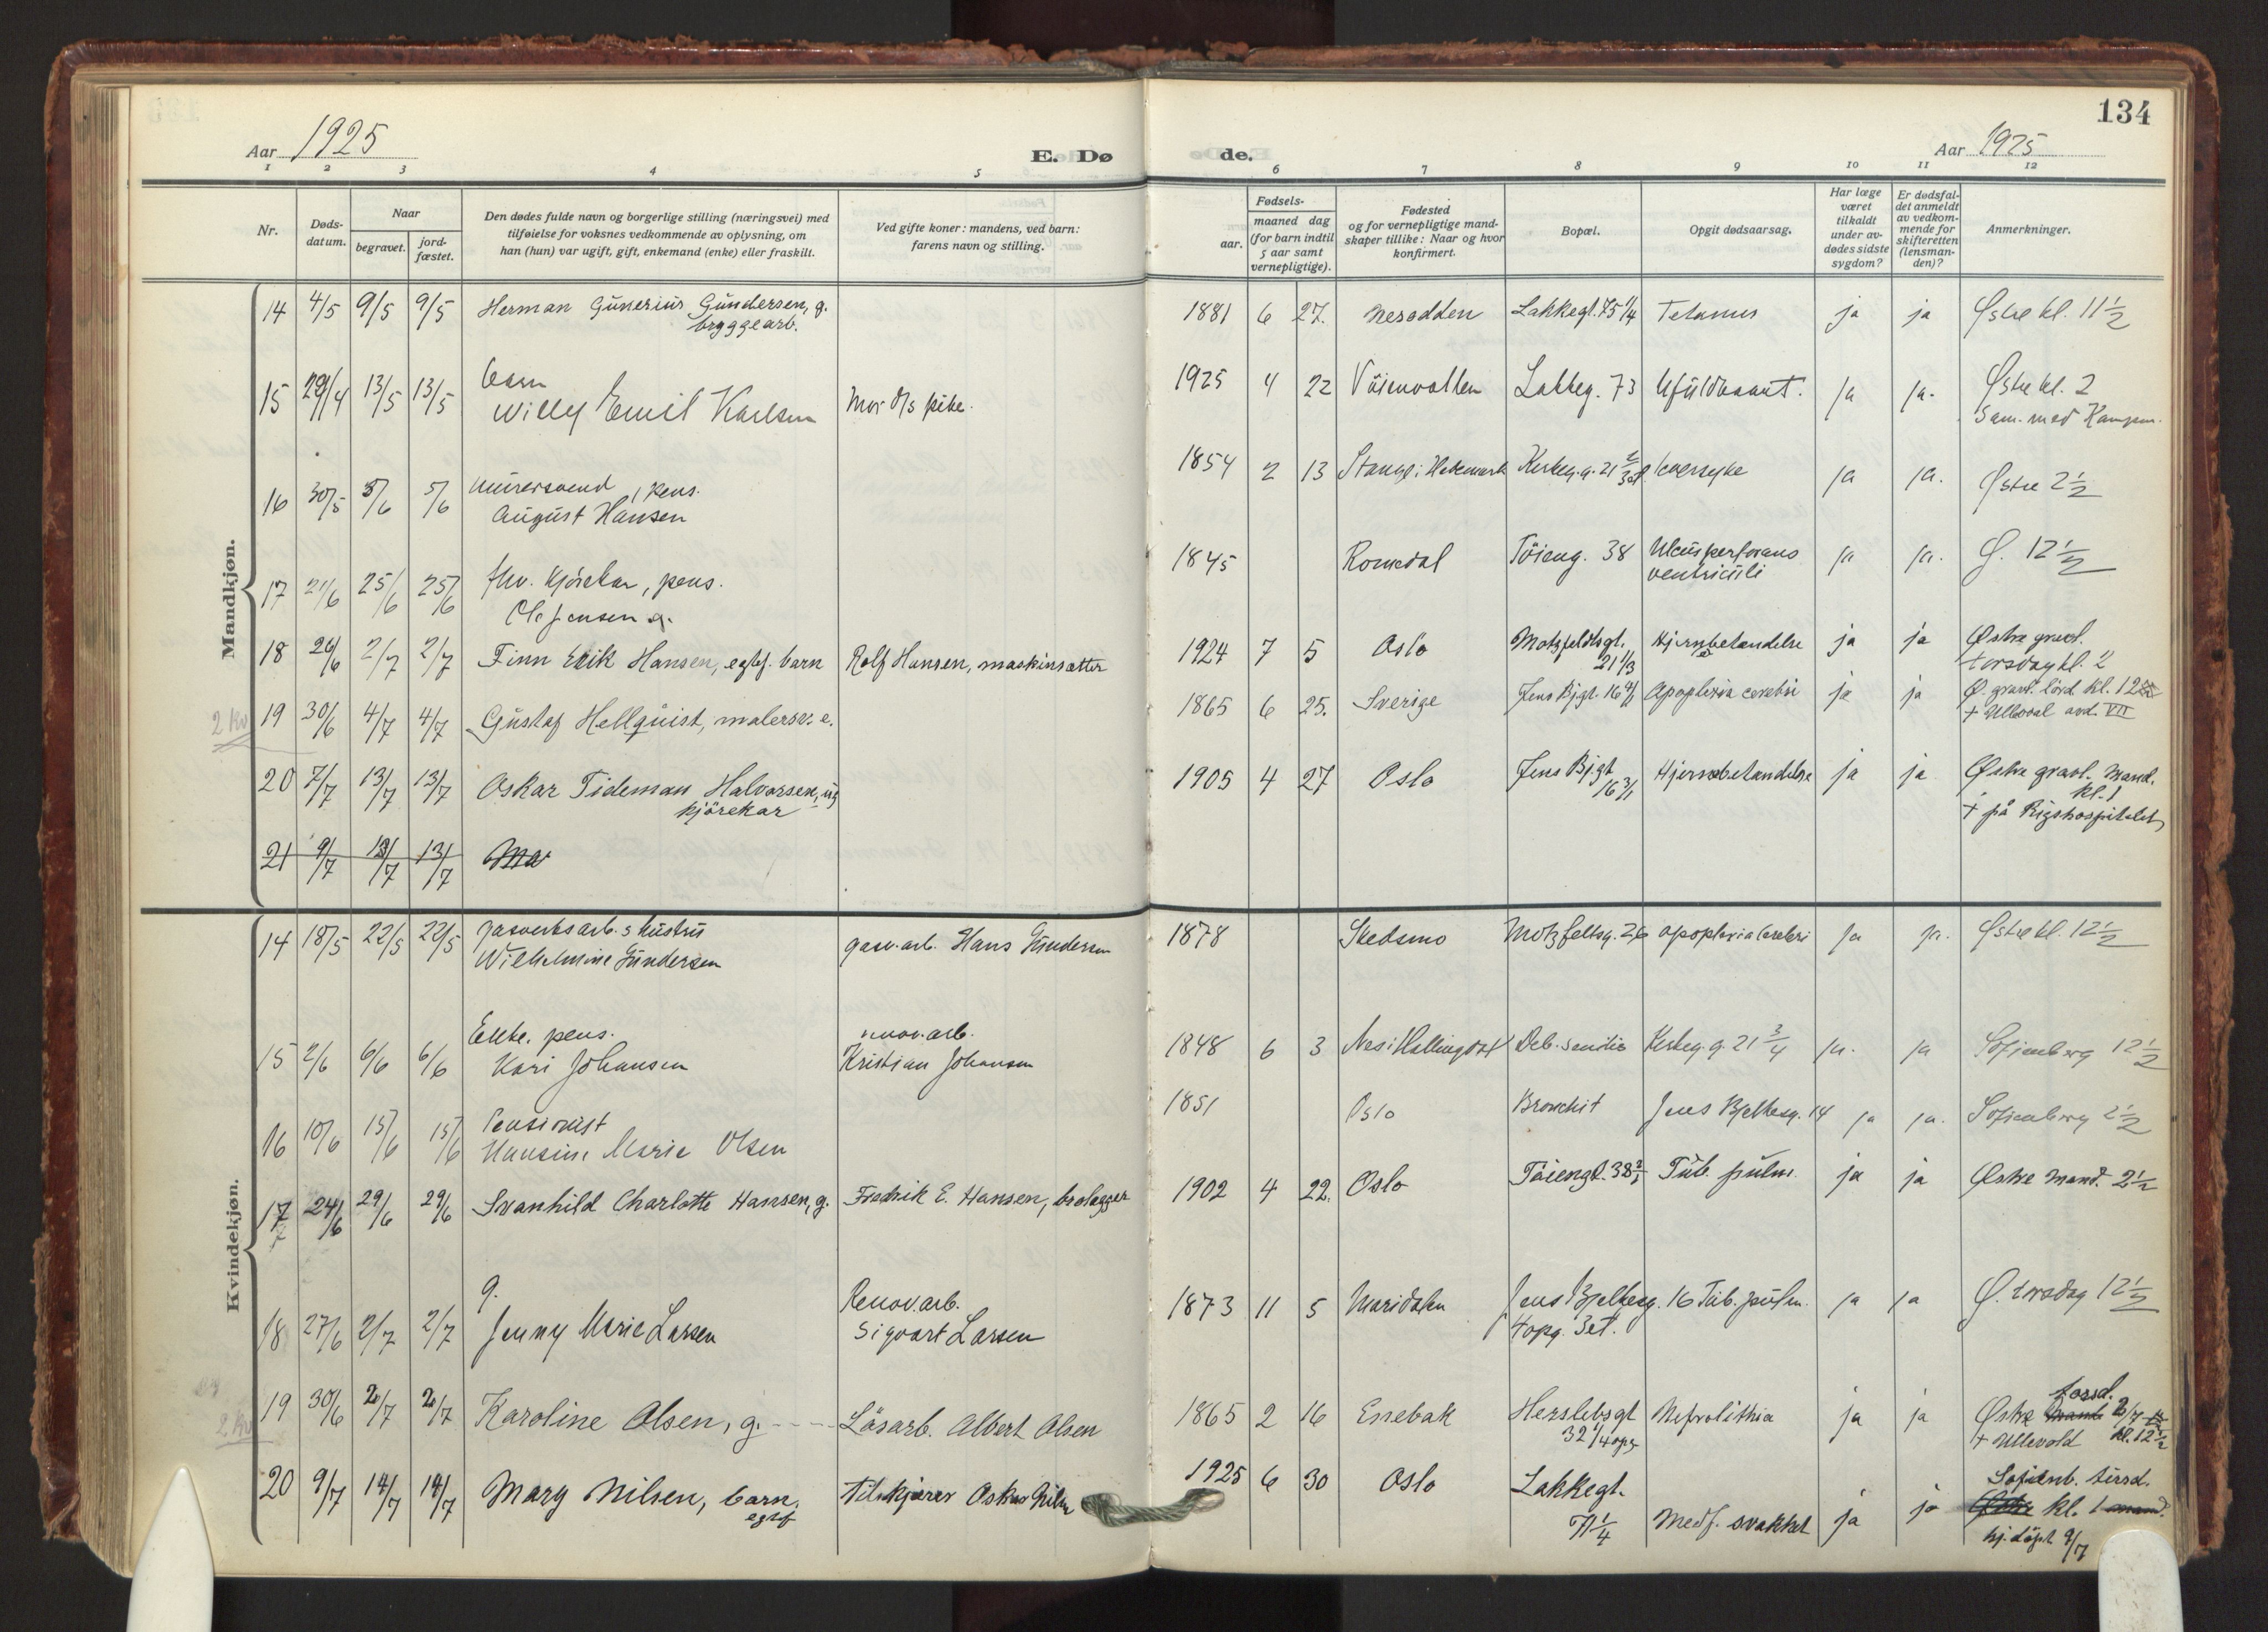 134
Aar 1925
E. Dø
de.
Aar 1925
1 2 3 4 5 6 7 8 9 10 11 12
Nr.
Døds-
datum.
Naar
begravet.
jord-
fæstet.
Den dødes fulde navn og borgerlige stilling (næringsvei) med
tilføielse for voksnes vedkommende av oplysning, om
han (hun) var ugift, gift, enkemand (enke) eller fraskilt.
Ved gifte koner: mandens, ved barn:
farens navn og stilling.
Fødsels-
aar.
maaned dag
(for barn indtil
5 aar samt
vernepligtige).
Fødested
og for vernepligtige mand-
skaper tillike: Naar og hvor
konfirmert.
Bopæl.
Opgit dødsaarsag.
Har læge
været
tilkaldt
under av-
dødes sidste
sygdom?
Er dødsfal-
det anmeldt
av vedkom-
mende for
skifteretten
(lensman-
den)?
Anmerkninger.
Mandkjøn.
14 4/5 9/5 9/5 Herman Gunerius Gundersen, g. 1881 6 27. Nesodden Lakkegt. 75 1/4 Tetanus ja ja Østre kl. 11 1/2
bryggearb.
15 29/4 13/5 13/5 barn
Willy Emil Karlsen Mor d/s pike. 1925 4 22 Vöienvolden Lakkeg. 73 Ufuldbaaret. ja ja. Østre kl. 2
Sam. med
16 30/5 5/6 5/6 murersvend, pens.
August Hansen 1854 2 13 Stange i Hedemark Kirkeg.g. 21 leversyke ja ja. Østre 2 1/2
17 21/6 25/6 25/6 fhv. kjörekar, pens.
Ole Jensen g. 1845 Romedal Töieng. 38 Ulcus perforans
ventriculi ja ja. Ø. 12 1/2
18 26/6 2/7 2/7 Finn Erik Hansen, egtef. barn Rolf Hansen, maskinsætter 1924 7 5 Oslo Motzfeldtsgt.
21 1/3 Hjernebetændelse ja ja Østre gravl.
torsdag kl. 2
2 kv
19 30/6 4/7 4/7 Gustaf Hellquist, malersv. e. 1865 6 25. Sverige Jens Bjgt. 16 4/1 Apoplexia cerebri ja ja Ø. gravl. lörd. kl. 12
+ Ullevål avd. VII
20 7/7 13/7 13/7 Oskar Tideman Halvorsen, ug 1905 4 27 Oslo Jens Bjgt
16 3/1 Hjernebetændelse ja ja Østre gravl. Mand.
kjörekar kl. 1
+ på Rigshospitalet
21 9/7 13/7 13/7 Ma
Kvindekjøn.
14 18/5 22/5 22/5 gasverksarb.s hustru
Wilhelmine Gundersen gasv.arb. Hans Gundersen 1878 Skedsmo Motzfeltsg. 26 apoplexia cerebri ja ja. Østre kl. 12 1/2
15 2/6 6/6 6/6 Enke. pens.
Kari Johansen renov.arb.
Kristian Johansen 1848 6 3 Nes i Hallingdal Deb. senilis Kirkeg.g. 21 3/4 ja. ja Sofienberg 12 1/2
16 10/6 15/6 15/6 Pensionist
Hansine Marie Olsen 1851 Oslo Bronchit Jens Bjelkesg. 14 ja ja. Sofienberg 2 1/2
17 24/6 29/6 29/6 Svanhild Charlotte Hansen, g. Fredrik E. Hansen, brolægger 1902 4 22. Oslo Töiengt. 38 Tub. pulm. ja ja Østre mand. 2 1/2
18 27/6 2/7 2/7 g.
Jenny Marie Larsen Renov.arb.
Sigvart Larsen 1873 11 5 Maridalen Jens Bjelkesg. 16 Tub. pulm. ja ja Ø. torsdag 12 1/2
4 opg. 3 et.
2 kv
19 30/6 2/7 2/7 Karoline Olsen, g. Løsarb. Albert Olsen 1865 2 16 Enebak Herslebsgt
32 1/4 opg. Nefrolithia ja ja torsd.
Østre mand. 2/7
+ Ullevold kl. 12 1/2
20 9/7 14/7 14/7 Mary Nilsen, barn. Tilskjærer Oskar Nilsen 1925 6 30 Oslo Lakkegt.
egtef 71 1/4 Medf. svakhet ja ja Sofienb. tirsd.
Østre kl. 1 mand.
hj.döpt 9/7